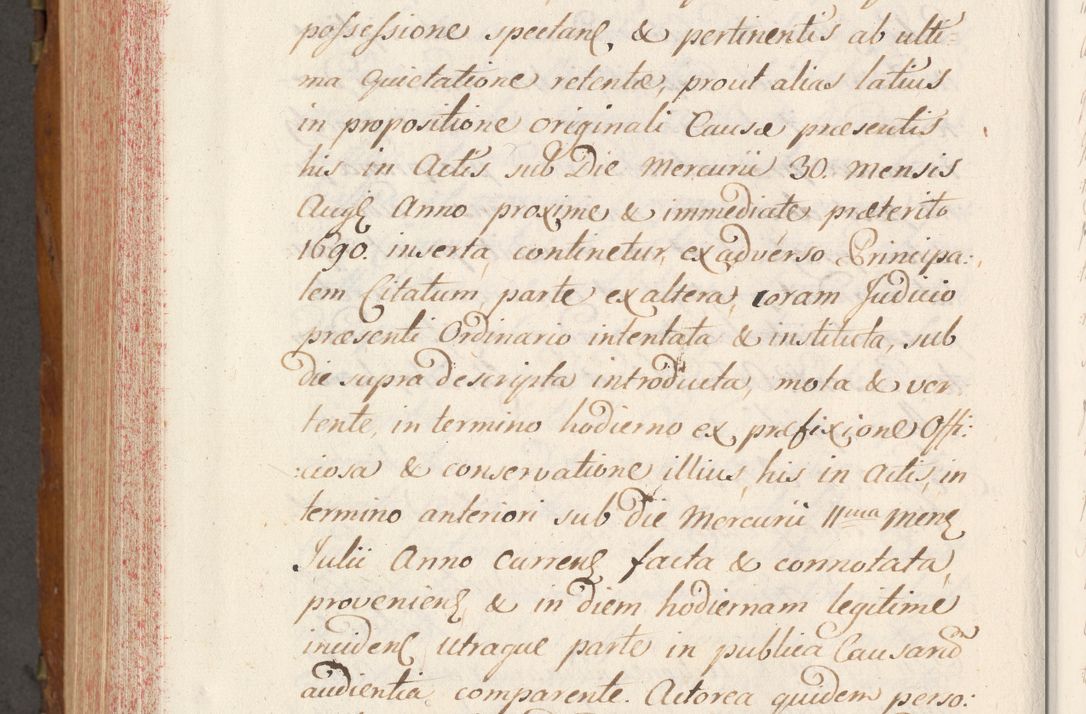 possessione spectanˢ, & pertinentis ab ulti-
ma quietatione retentæ, prout alias latius
in propositione originali Causæ præsentis
his in Actis sub Die Mercurii 30. mensis
Augˢ Anno proxime & immediate præterito
1690. inserta, continetur, ex adverso Principa:
lem Citatum, parte ex altera, coram Judicio
præsenti Ordinario intentata & instituta, sub
die supra descripta introducta, mota & ver
tente, in termino hodierno ex præfixione Offi:
:ciosa & conservatione illius, his in Actis, in
termino anteriori sub die Mercurii 11ma menˢ
Julii Anno Currenˢ facta & connotata,
provenienˢ, & in diem hodiernam legitime
incidenˢ utraque parte in publica Causarū
audientia, comparente. Actorea quidem perso: